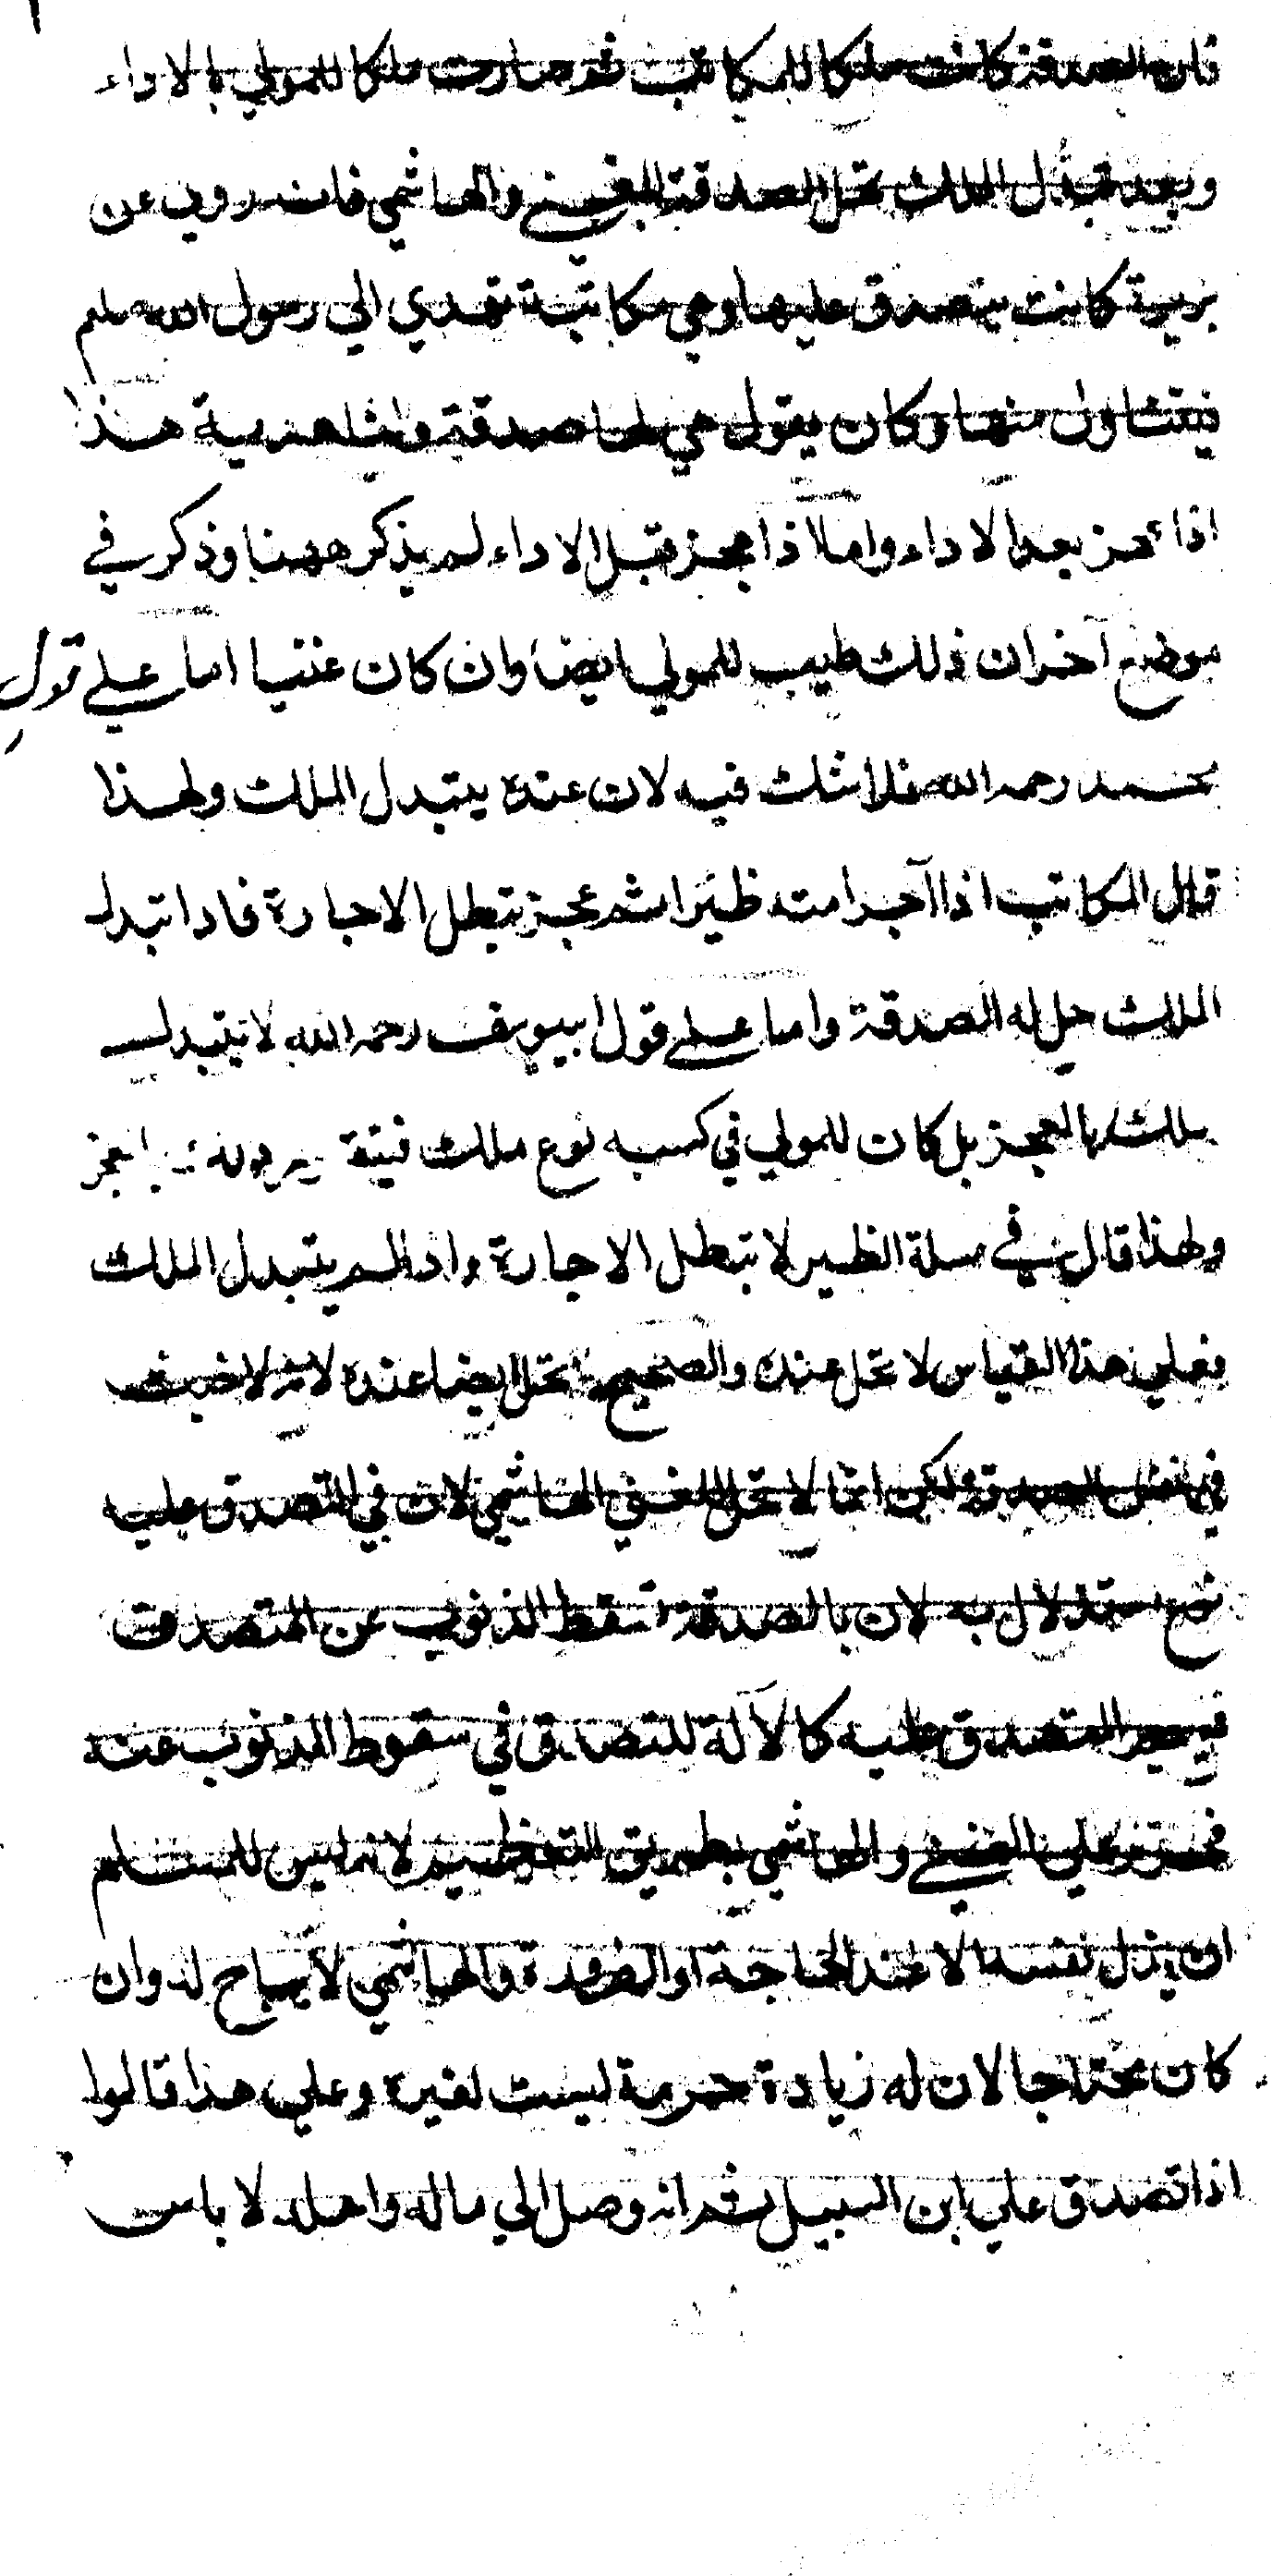 فان الصدقة كانت ملكا للمكاتب ثم صارت ملكا للمولي بالاداء
وبعد تبدل الملك تحل الصدقة للغني والهاشمي فان روي عن
بريرة كانت يتصدق عليها وهي مكاتبة تهدي الي رسول الله صلعم
فيتناول منها وكان يقول هي لها صدقة ولنا هدية هذا
اذا عجز بعد الاداء واما اذا عجز قبل الاداء لم يذكر ههنا وذكر في
موضع آخر ان ذلك طيب للمولي ايضا وان كان غنيا اما علي قول
محمد رحمه الله فلا شك فيه لان عنده يتبدل الملك ولهذا
قال المكاتب اذا آجر امته ظئرا ثم عجز تبطل الاجارة فاذا تبدل
الملك حل له الصدقة واما علي قول ابييوسف رحمه الله لا يتبدل
ملك بالعجز بل كان للمولي في كسبه نوع ملك عجز
ولهذا قال في مسلة الظير لا تبطل الاجارة واذا لم يتبدل الملك
فعلي هذا القياس لا تحل عنده والصحيح تحل ايضا عنده لانه لا خبث
في نفس الصدقة ولكن انما لا تحل للغني الهاشمي لان في التصدق عليه
نوع استذلال به لان بالصدقة تسقط الذنوب عن المتصدق
فيصير المتصدق عليه كالآلة للتصدق في سقوط الذنوب عنه
فحرم علي الغني والهاشمي بطريق التعظيم لانه ليس للمسلم
ان يذل نفسه الا عند الحاجة او الضرورة والهاشمي لا يباح له وان
كان محتاجا لان له زيادة حرمة ليست لغيره وعلي هذا قالوا
اذا تصدق علي ابن السبيل ثم انه وصل الي ماله واهله لا باس